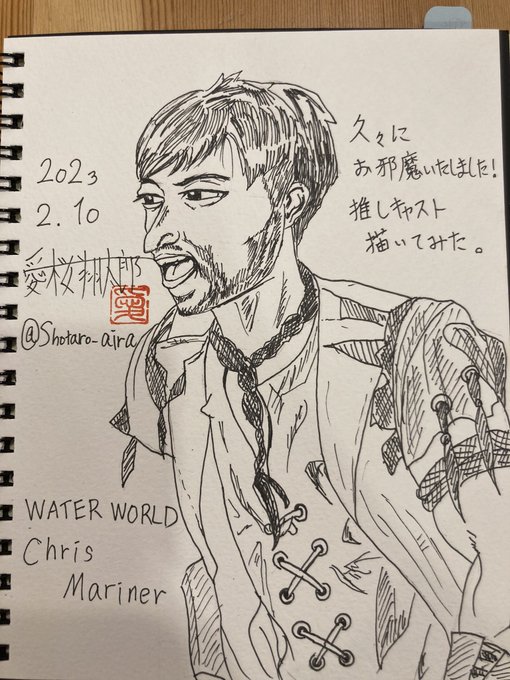 2023
2.10
愛桜翔太郎
@Shotaro-aira
久々に
お邪魔いたしました!
推しキャスト
描いてみた。
WATER WORLD
Chris
Mariner